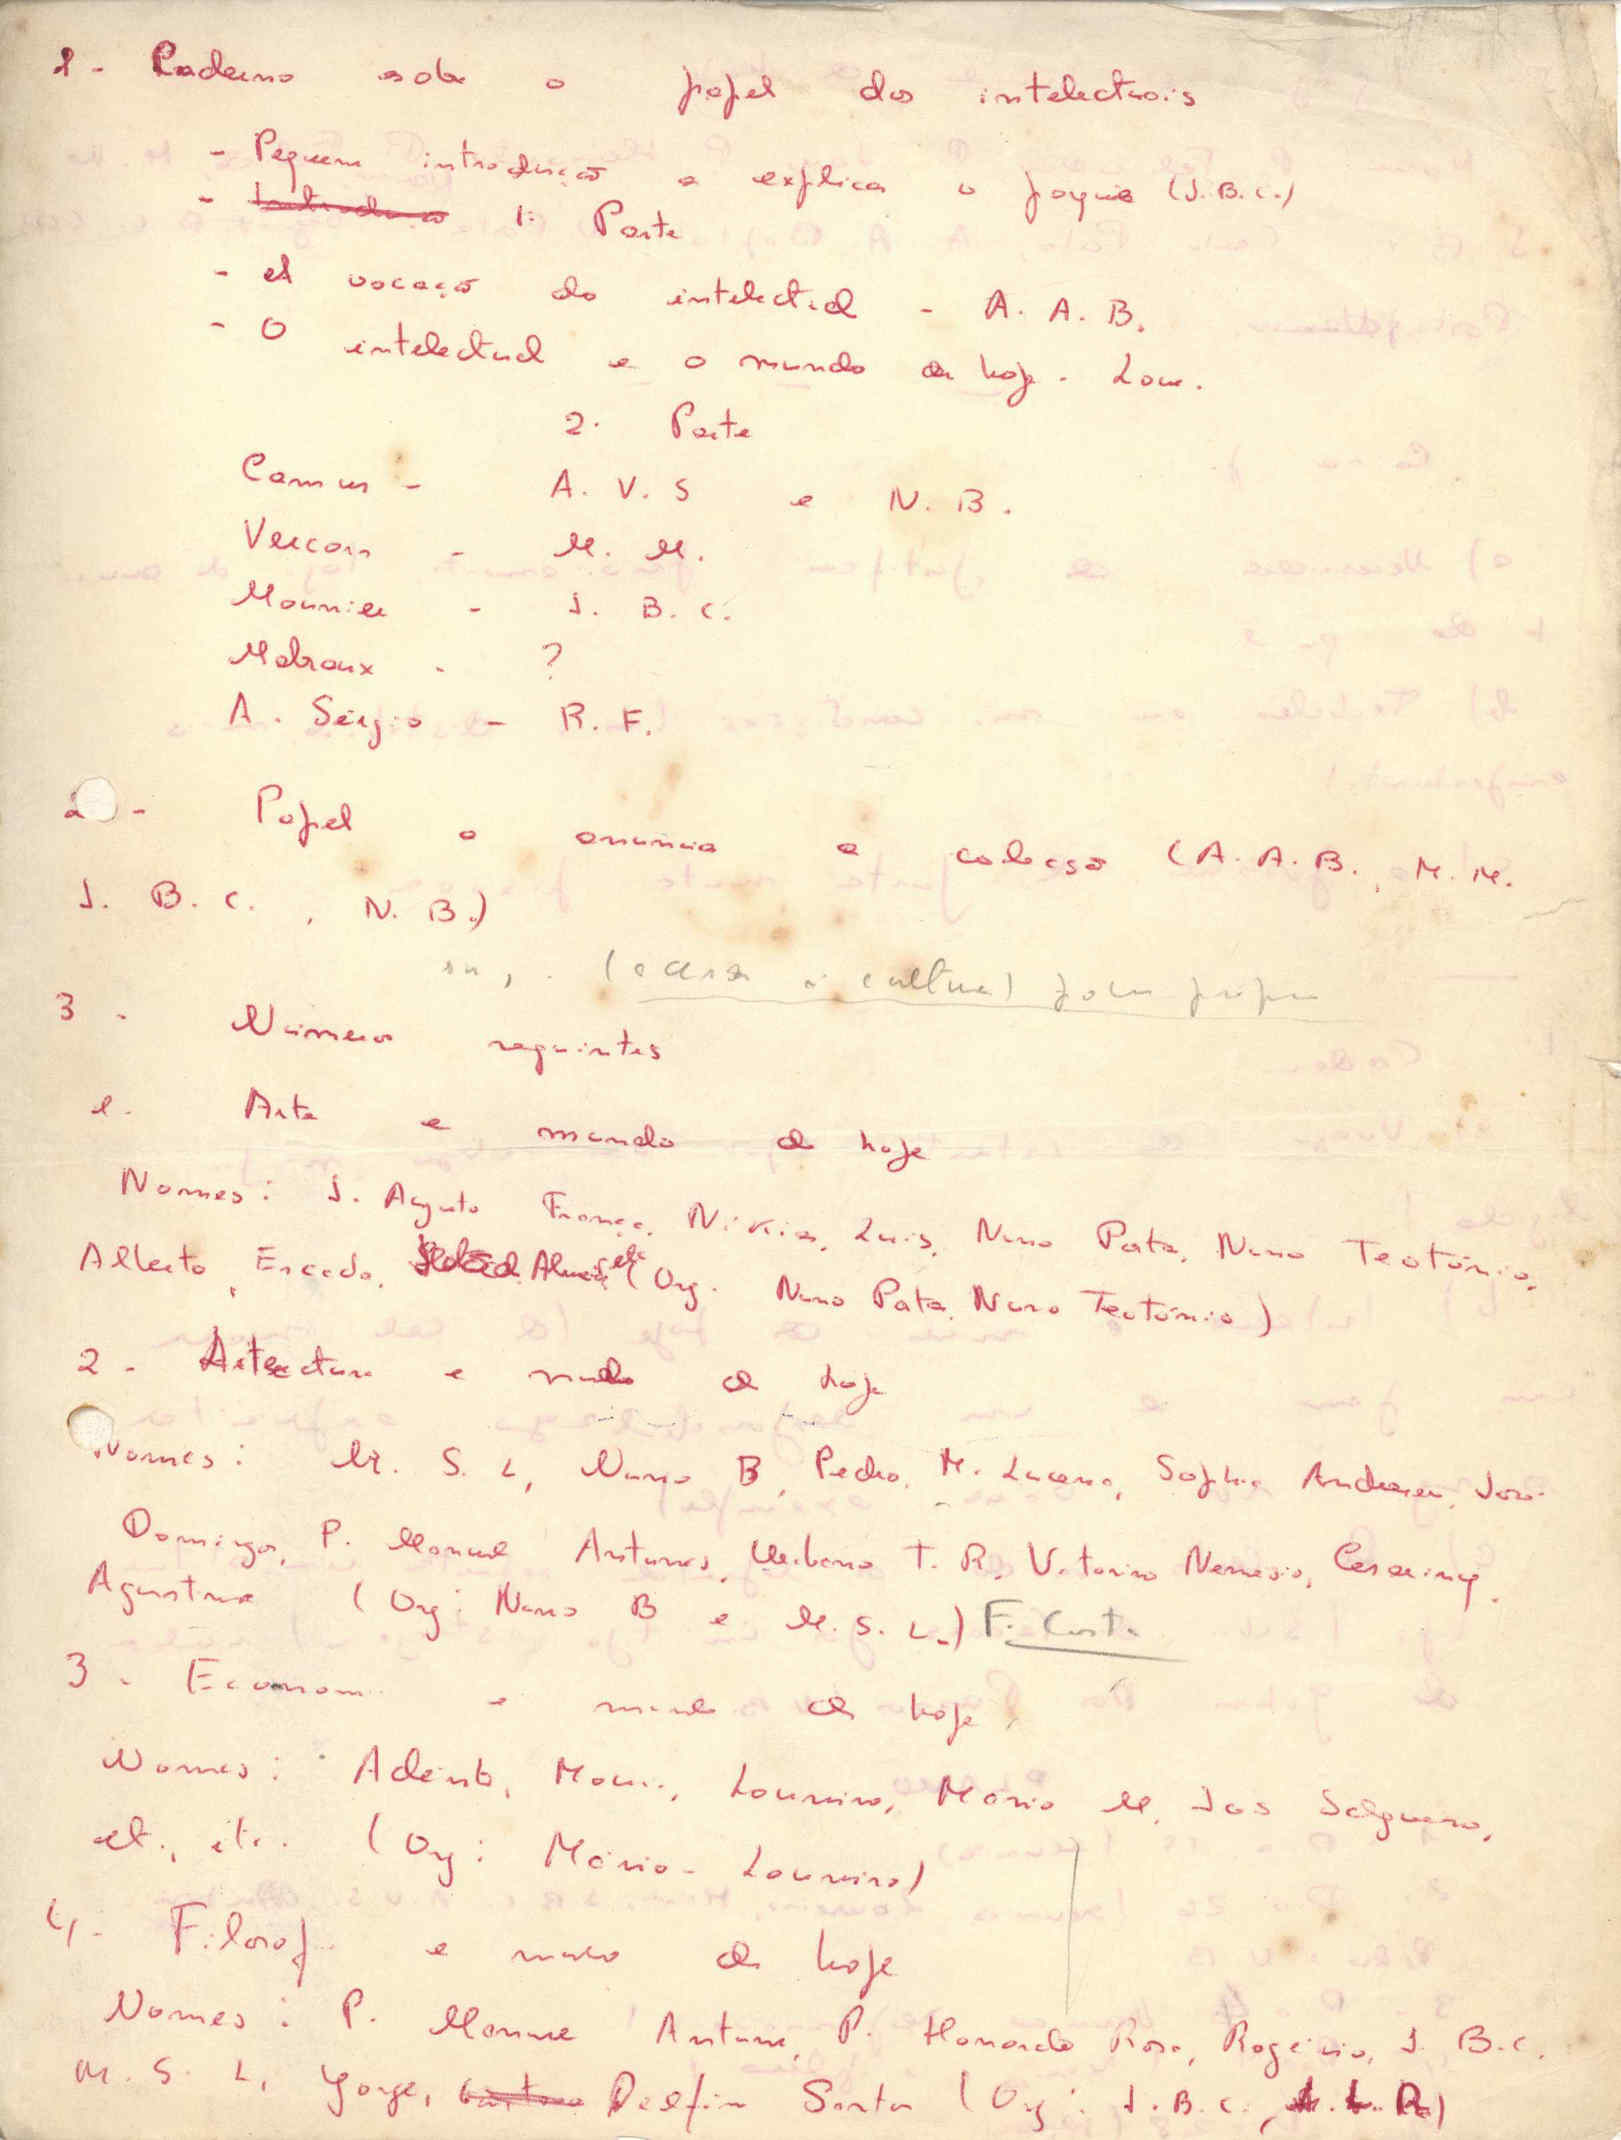 1 - Caderno sobre o papel dos intelectuais
- Pequena introdução a explicar o porquê (J.B.C.)
- Introdução 1ª Parte
- A vocação do intelectual - A. A. B.
- O intelectual e o mundo de hoje - Lour.
2ª Parte
Camus - A. V. S e N. B.
Vercors - M. M.
Mounier - J. B. C.
Malraux - ?
A. Sérgio - R. F.
2 - Papel a anunciar a colecção (A. A. B., M. M.
J. B. C., N. B.)
(a cultura)
3 - Números seguintes
1. Arte e mundo de hoje
Nomes: J. Augusto França, Nikias, Luis, Nuno Pata, Nuno Teotónio,
Alberto, Escada, Almeida (Org. Nuno Pata, Nuno Teotónio)
2 - e mundo de hoje
Nomes: M. S. L, Nuno B, Pedro, M. Lucena, Sophia Andresen, José
Domingos, P. Manuel Antunes, Urbano T. R, Vitorino Nemésio, Cesariny,
Agustina (Org: Nuno B e M. S. L.) F. Costa
3 - Econom e mundo de hoje
Nomes: Adérito, Moura, Loureiro, Mário M, Jos Salgueiro,
etc., etc. (Org: Mário - Loureiro)
4 - Filosof e mundo de hoje
Nomes: P. Manuel Antunes, P. Honorato Rosa, Rogério, J. B.C.
M. S. L, Jorge, Delfim Santos (Org: J. B. C.,